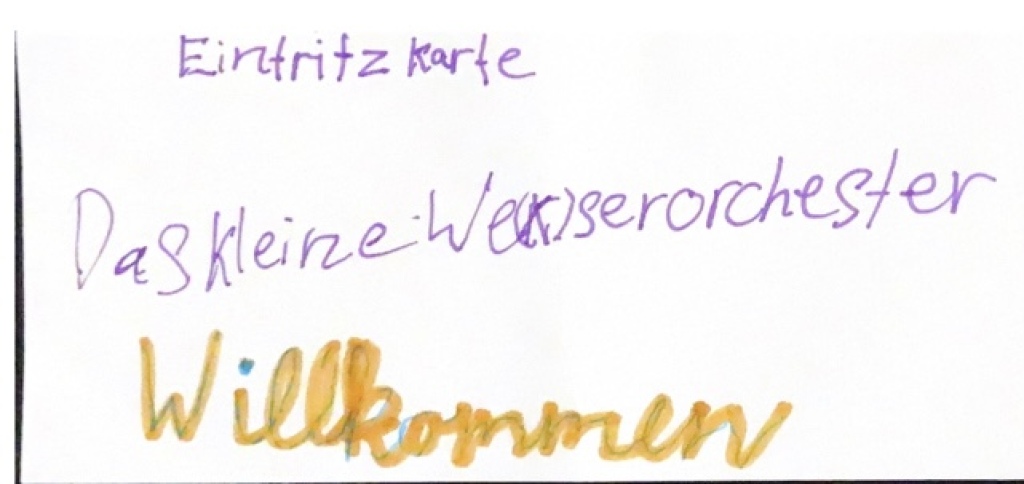 Eintritzkarte
Das kleine We(r)serorchester
Willkommen